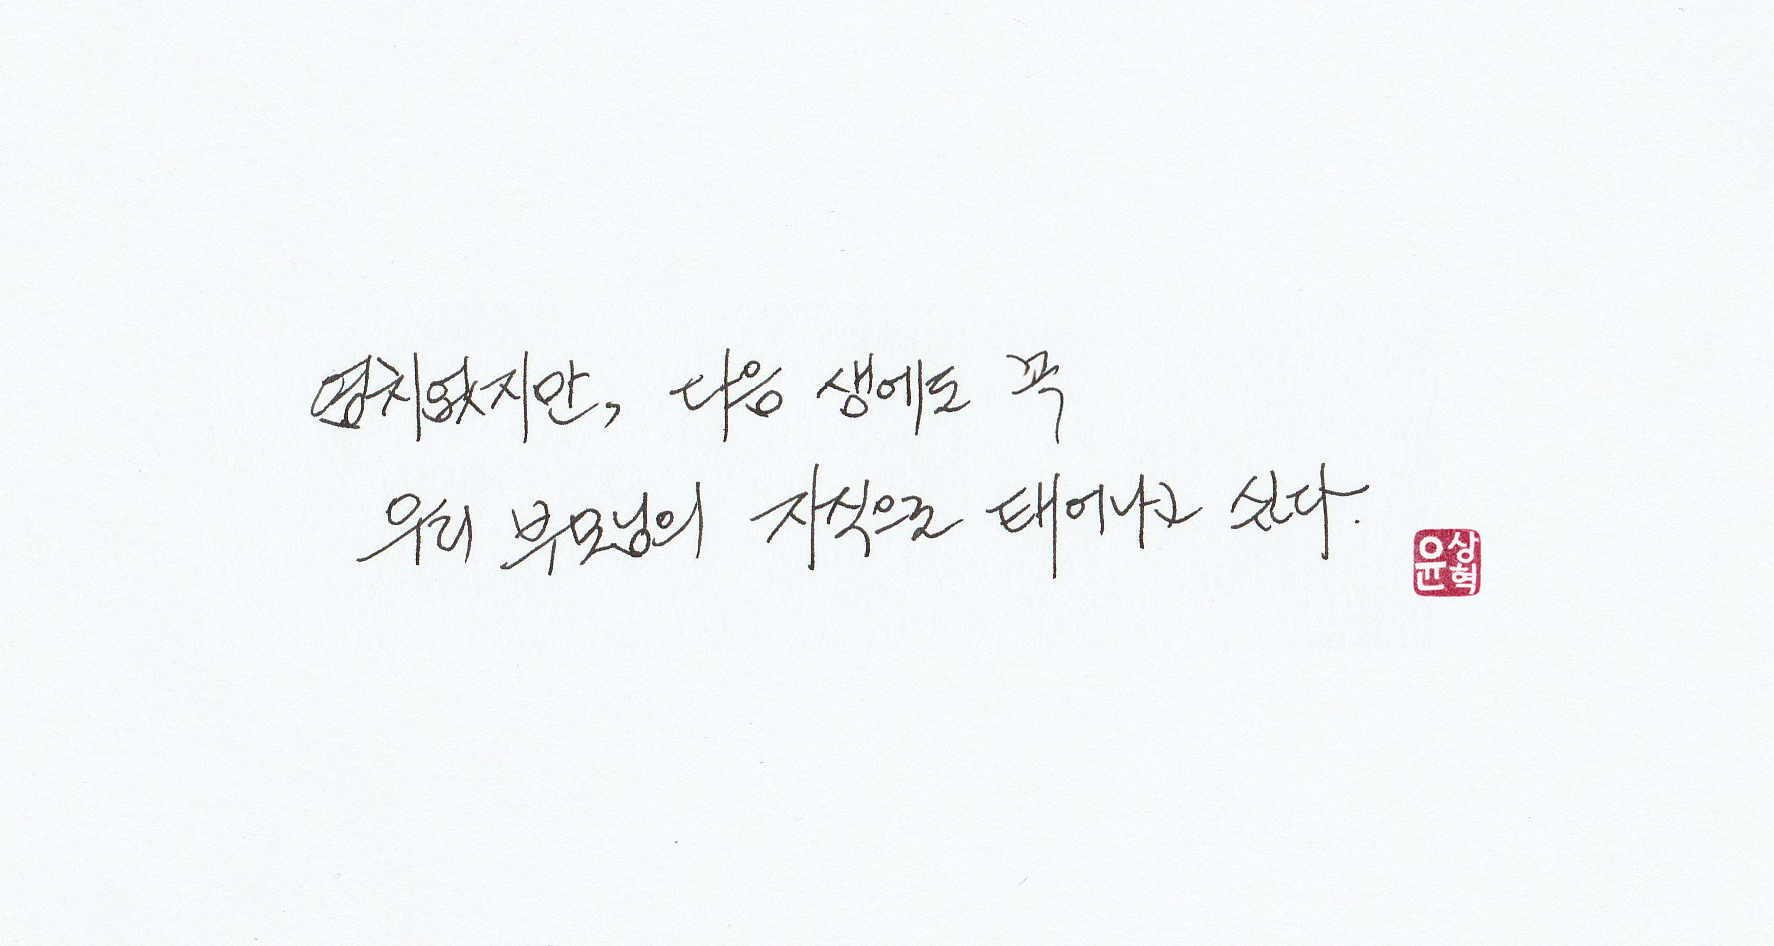 염치없지만, 다음 생에도 꼭
우리 부모님의 자식으로 태어나고 싶다.
윤상혁